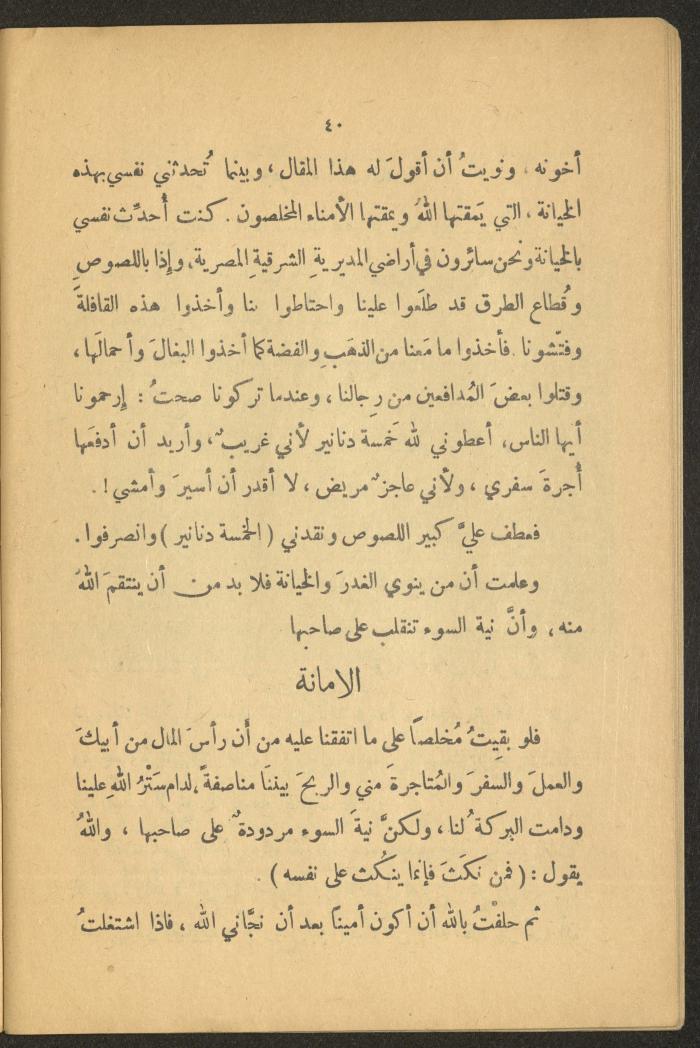 ٤٠
أخونه، ونويتُ أن أقولَ له هذا المقال، وبينما تُحدثني نفسي بهذه
الخيانة، التي يَمقتها اللهُ ويمقتها الأمناء المخلصون. كنت أُحدِّث نفسي
بالخيانة ونحن سائرون في أراضي المديريةِ الشرقيةِ المصرية، وإذا باللصوصِ
وقُطاع الطرق قد طلَعوا علينا واحتاطوا بنا وأخذوا هذه القافلةَ
وفتّشونا. فأخذوا ما مَعنا من الذهَبِ والفضة كما أخذوا البغالَ وأحمالَها،
وقتلوا بعضَ المُدافعين من رِجالنا، وعندما تركونا صحتُ: إرحمونا
أيها الناس، أعطوني لله خَمسة دنانير لأني غريبٌ، وأريد أن أدفعَها
أُجرةَ سفري، ولأني عاجزٌ مريض، لا أقدر أن أسيرَ وأمشي!.
فعطف عليَّ كبير اللصوص ونقدني (الخمسة دنانير) وانصرفوا.
وعلمت أن من ينوي الغدرَ والخيانة فلا بد من أن ينتقمَ اللهُ
منه، وأنَّ نية السوء تنقلب على صاحبها
الامانة
فلو بقِيتُ مُخلصاً على ما اتفقنا عليه من أن رأسَ المال من أبيكَ
والعملَ والسفرَ والمُتاجرةَ مني والربحَ بيننَا مناصفةً، لدام سَتْرُ اللهِ علينا
ودامت البركةُ لنا، ولكنَّ نيةَ السوء مردودةٌ على صاحبها، واللهُ
يقول: (فمن نكَثَ فإنما ينكُث على نفسه).
ثم حلفْتُ بالله أن أكون أميناً بعد أن نجَّاني الله، فاذا اشتغلتُ